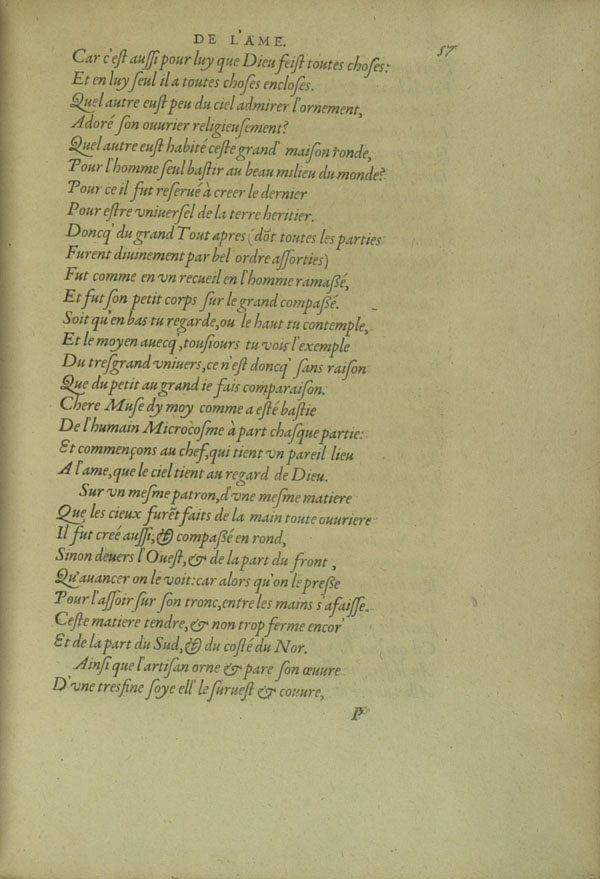 DE L'AME.
57
Car c'eſt auſſi pour luy que Dieu feiſt toutes choſes:
Et en luy ſeul il a toutes choſes encloſes.
Quel autre euſt peu du ciel admirer l'ornement,
Adoré ſon ouurier religieuſement?
Quel autre euſt habité ceſte grand' maiſon ronde,
Pour l'homme ſeul baſtir au beau milieu du monde?
Pour ce il fut reſerué à creer le dernier
Pour eſtre vniuerſel de la terre heritier.
Doncq' du grand Tout apres (dōt toutes les parties
Furent diuinement par bel ordre aſſorties)
Fut comme en vn recueil en l'homme ramaßé,
Et fut ſon petit corps ſur le grand compaßé.
Soit qu'en bas tu regarde, ou le haut tu contemple,
Et le moyen auecq', touſiours tu vois l'exemple
Du treſgrand vniuers, ce n'eſt doncq' ſans raiſon
Que du petit au grand ie fais comparaiſon.
Chere Muſe dy moy comme a eſté baſtie
De l'humain Microcoſme à part chaſque partie:
Et commençons au chef, qui tient vn pareil lieu
A l'ame, que le ciel tient au regard de Dieu.
Sur vn meſme patron, d'vne meſme matiere
Que les cieux furēt faits de la main toute ouuriere
Il fut creé auſſi, & compaßé en rond,
Sinon deuers l'Oueſt, & de la part du front,
Qu'auancer on le voit: car alors qu'on le preße
Pour l'aſſoir ſur ſon tronc, entre les mains s'afaiſſe.
Ceſte matiere tendre, & non trop ferme encor'
Et de la part du Sud, & du coſté du Nor.
Ainſi que l'artiſan orne & pare ſon œuure
D'vne treſfine ſoye ell' le ſurueſt & couure,
P